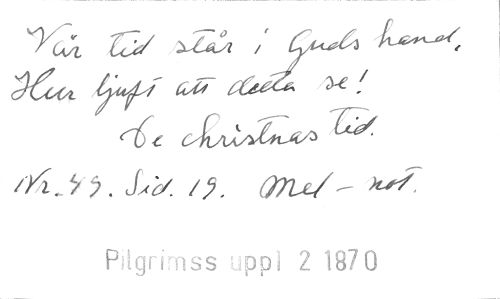 Vår tid står i Guds hand,
Hur ljuft att detta se!
De christnas tid.
Nr. 49. Sid. 19. Mel – not.
Pilgrimss uppl 2 1870